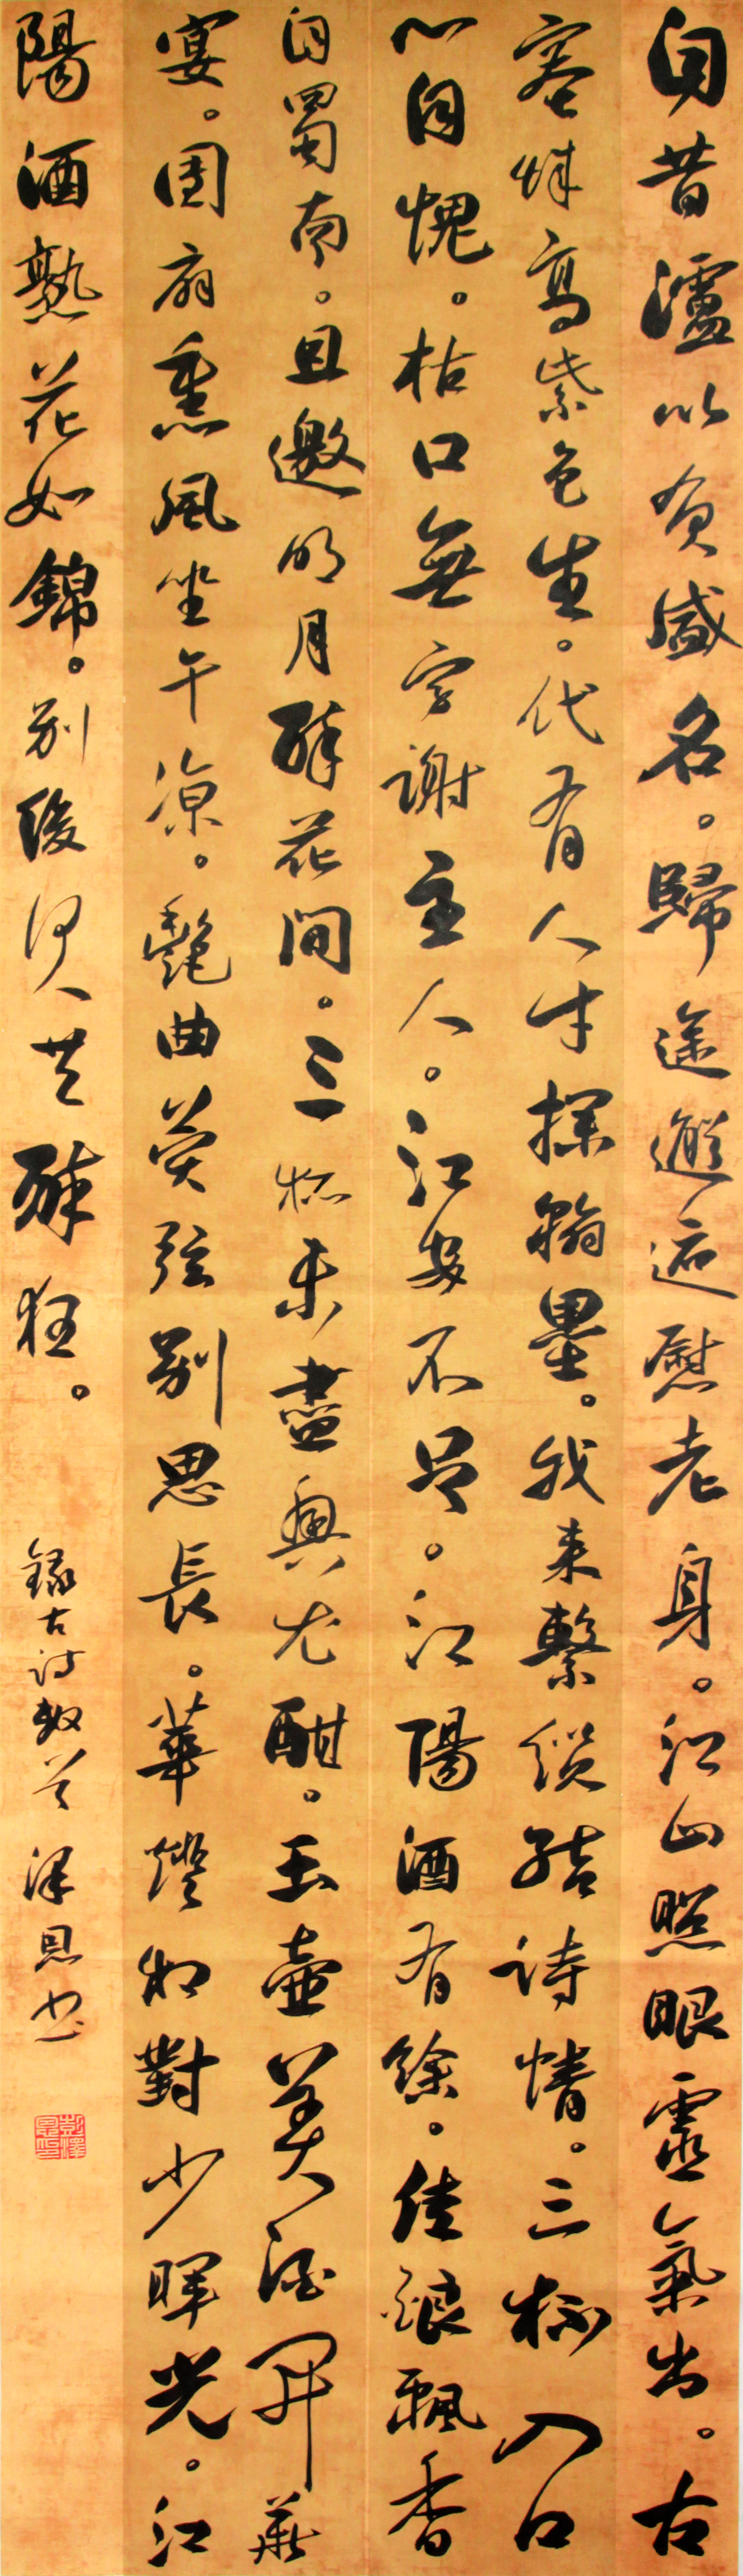 自昔瀘以負盛名。歸途邂逅慰老身。江山照眼靈氣出。古
塞烽高紫色生。代有人才探翰墨。我来繫纜結詩情。三杯入口
心自愧。枯口無字謝主人。江安不足。江陽酒有餘。佳釀飄香
自蜀南。且邀明月醉花間。三杯未盡興尤酣。玉壺美酒開華
宴。團扇熏風坐午凉。艷曲繁弦别思長。華燈相對少暉光。江
陽酒熟花如錦。别後何人共醉狂。
錄古詩數首 澤恩书
彭澤恩印